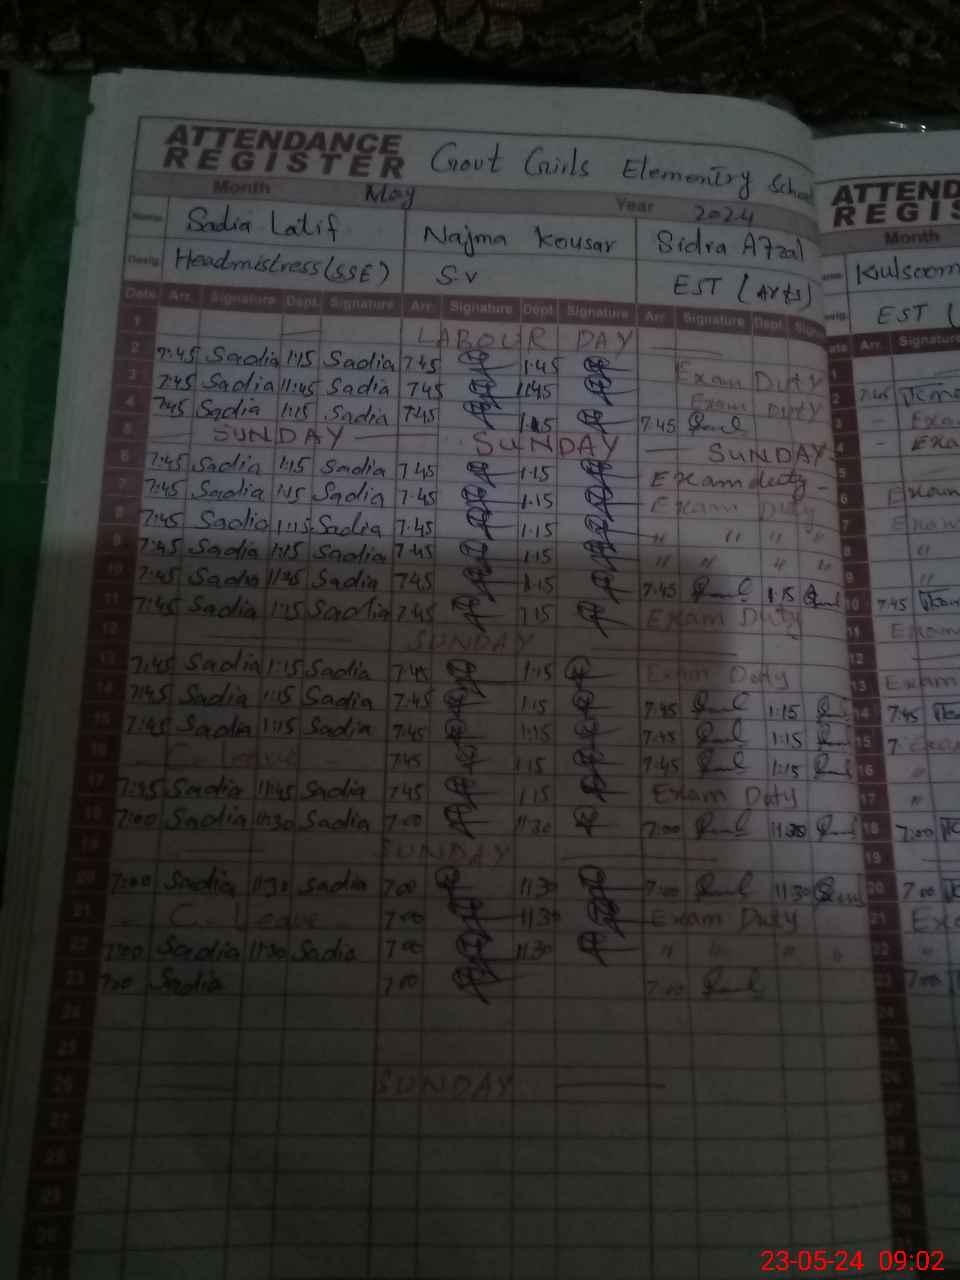 ATTENDANCE REGISTER Govt Girls Elementry School
Month May Year 2024
Name Sadia Latif Najma Kousar Sidra Afzal
Desig. Headmistress (SSE) S.V EST (Arts)
Date Arr. Signature Dept. Signature Arr. Signature Dept. Signature Arr. Signature Dept. Signature
1 LABOUR DAY
2 7:45 Sadia 1:15 Sadia 7:45 1:45 Exam Duty
3 7:45 Sadia 11:45 Sadia 7:45 11:45 Exam Duty
4 7:45 Sadia 1:15 Sadia 7:45 1:15 7:45
5 SUNDAY SUNDAY SUNDAY
6 7:45 Sadia 1:15 Sadia 7:45 1:15 Exam duty
7 7:45 Sadia 1:15 Sadia 7:45 1:15 Exam Duty
8 7:45 Sadia 1:15 Sadia 7:45 1:15 " " " "
9 7:45 Sadia 1:15 Sadia 7:45 1:15 " " " "
10 7:45 Sadia 11:45 Sadia 7:45 1:15 7:45 1:15
11 7:45 Sadia 1:15 Sadia 7:45 1:15 Exam Duty
12 SUNDAY
13 7:45 Sadia 1:15 Sadia 7:45 1:15 Exam Duty
14 7:45 Sadia 1:15 Sadia 7:45 1:15 7:45 1:15
15 7:45 Sadia 1:15 Sadia 7:45 1:15 7:45 1:15
16 C. Leave 7:45 1:15 7:45 1:15
17 7:45 Sadia 11:45 Sadia 7:45 1:15 Exam Duty
18 7:00 Sadia 11:30 Sadia 7:00 11:30 7:00 11:30
19 SUNDAY
20 7:00 Sadia 11:30 Sadia 7:00 11:30 7:00 11:30
21 C. Leave 7:00 11:30 Exam Duty
22 7:00 Sadia 11:30 Sadia 7:00 11:30 " " " "
23 7:00 Sadia 7:00 7:00
24
25
26 SUNDAY
27
28
29
30
31
ATTEND
REGIS
Month
Kulsoom
EST (
Arr. Signature
1
2 7:45
3 - Exa
4 - Exa
5
6 Exam
7 Exam
8 "
9 "
10 7:45
11 Exam
12
13 Exam
14 7:45
15
16 "
17 "
18 7:00
19
20 7:00
21 Exa
22 "
23 7:00
24
25
26
27
28
29
30
23-05-24 09:02